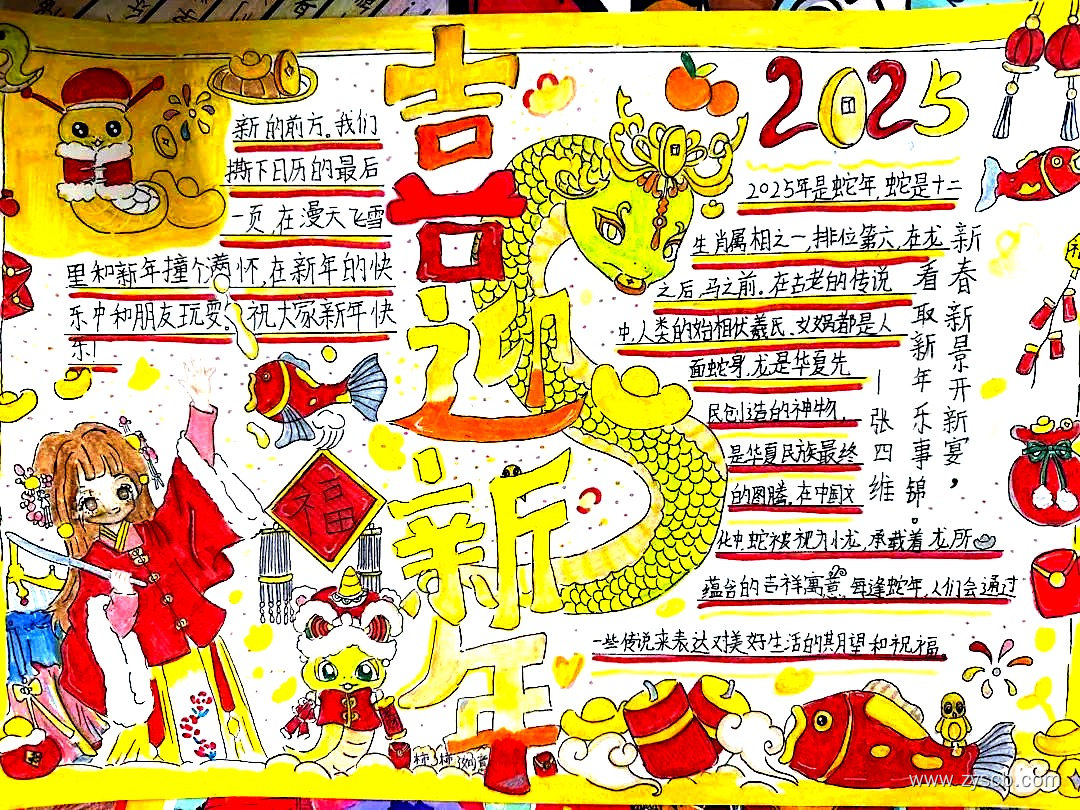 吉吉迎新年
2025
新的前方。我们
撕下日历的最后
一页,在漫天飞雪
里和新年撞个满怀,在新年的快
乐中和朋友玩耍。祝大家新年快
乐!
2025年是蛇年,蛇是十二
生肖属相之一,排位第六,在龙
之后,马之前。在古老的传说
中,人类的始祖伏羲氏、女娲都是人
面蛇身,龙是华夏先
民创造的神物,
是华夏民族最终
的图腾。在中国文
化中蛇被视为小龙,承载着龙所
蕴含的吉祥寓意。每逢蛇年,人们会通过
一些传说来表达对美好生活的期望和祝福。
新春新景开新宴,
看取新年乐事锦。
—张四维
福
柿柿如意
www.zyscb.com